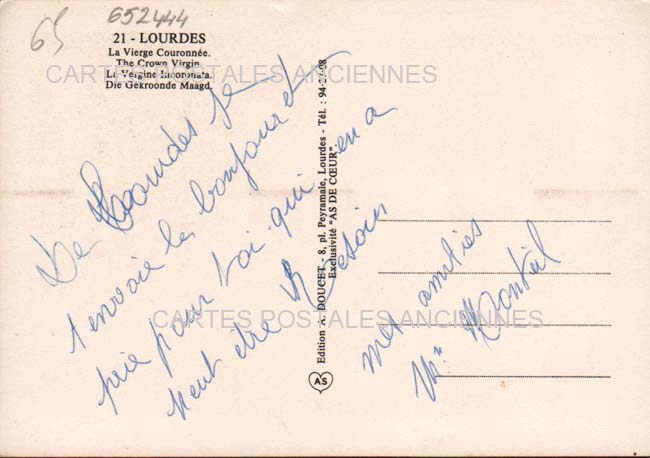 65
652444
21 - LOURDES
La Vierge Couronnée.
The Crown Virgin.
La Vergine Incoronata.
Die Gekroonde Maagd.
CARTES POSTALES ANCIENNES
De Lourdes je
t envoie les bonjour et
prie pour toi qui en a
peut etre Besoin
Edition A. DOUCET - 8, pl. Peyramale, Lourdes - Tél. : 94-27-08
Exclusivité "AS DE CŒUR"
AS
mes amitiés
CARTES POSTALES ANCIENNES